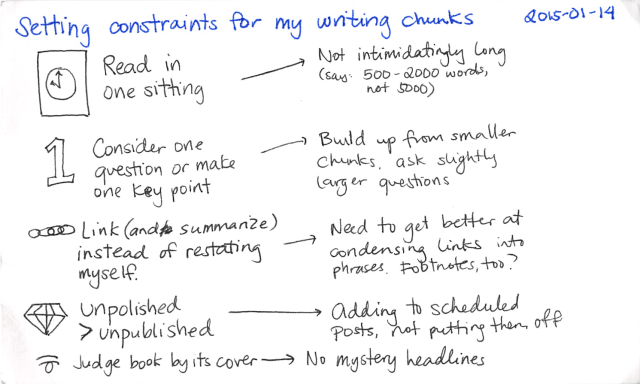 Setting constraints for my writing chunks 2015-01-14
Read in
one sitting
Not intimidatingly long
(say: 500-2000 words,
not 5000)
1
Consider one
question or make
one key point
Build up from smaller
chunks, ask slightly
larger questions
Link (and/or summarize)
instead of restating
myself.
Need to get better at
condensing links into
phrases. Footnotes, too?
Unpolished
> unpublished
Adding to scheduled
posts, not putting them off
Judge book by its cover
No mystery headlines